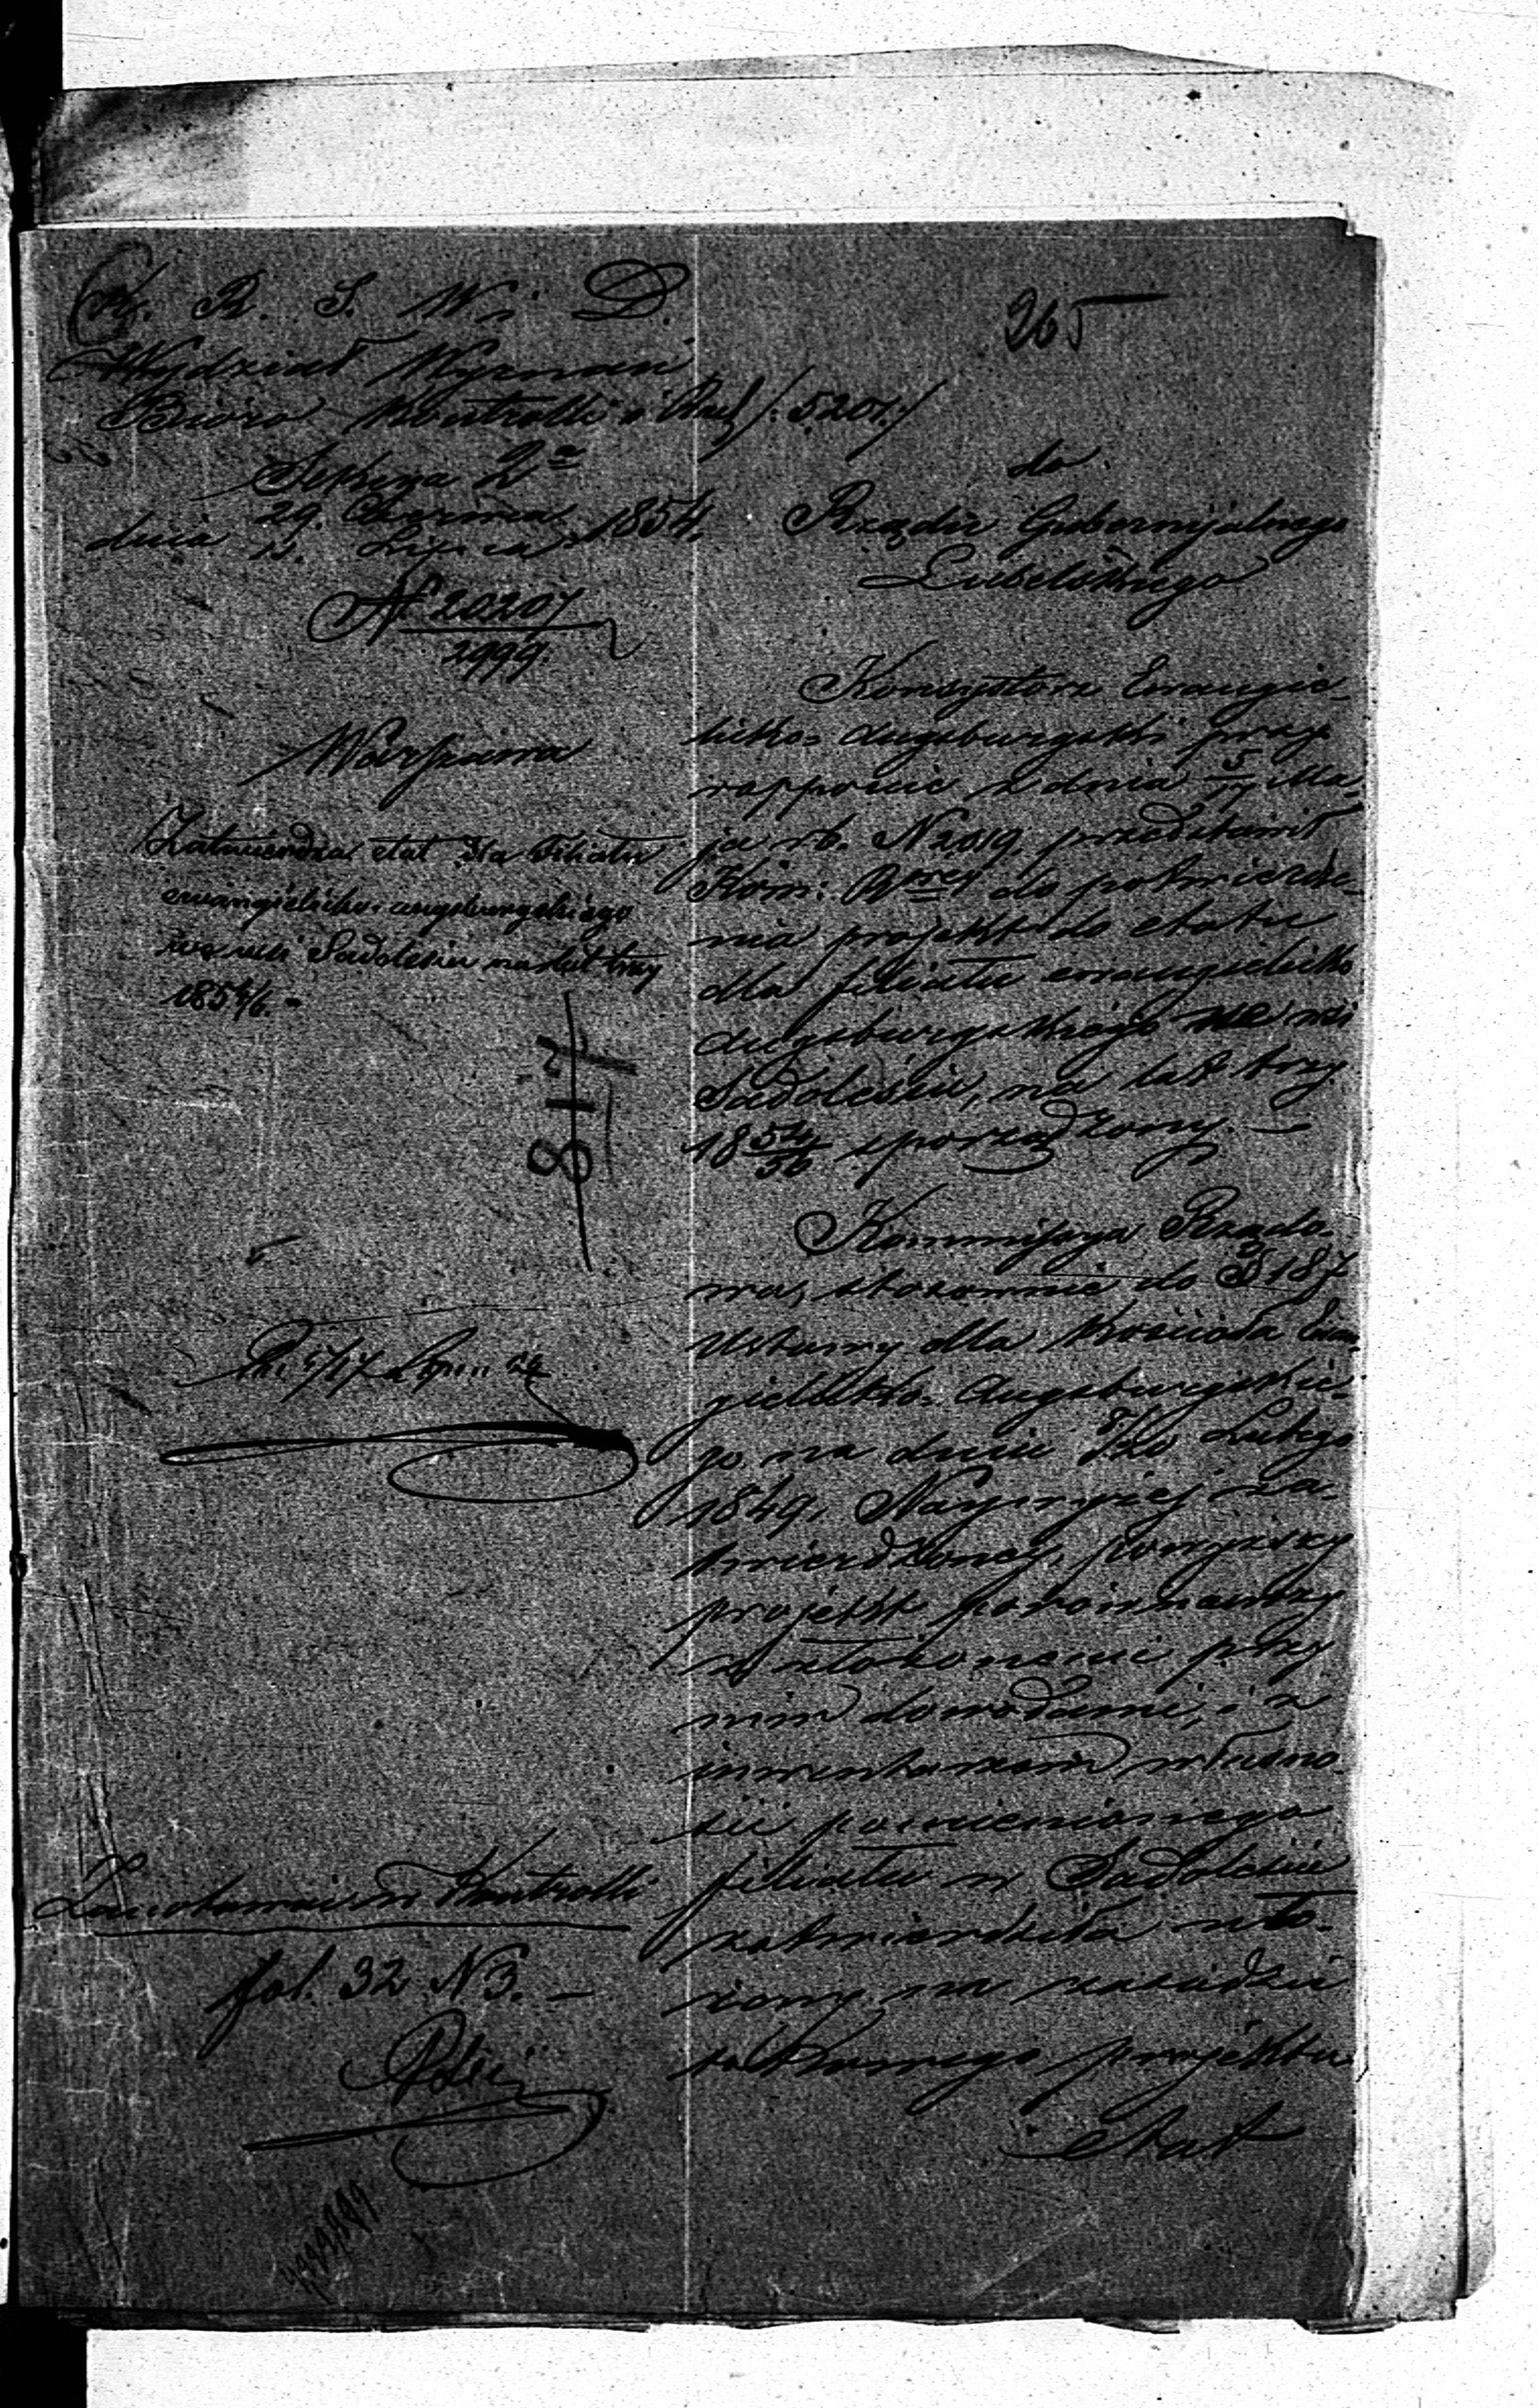 K. R. S. W. i D.
Wydział Wyznań
Biuro Kontrolli i Rach /:5207:/
Sekcya 2a
dnia 29 Czerwca 1854
11 Lipca
N 20207
2999.
Warszawa
Zatwierdza etat dla Filiału
ewangielicko-augsburgskiego
we wsi Sadolesiu na lat trzy
1854/6. -
817
Zanotowano w Kontrolli
fol. 32 N 3. -
265
do
Rządu Gubernijalnego
Lubelskiego
Konsystorz Ewangie-
licko-Augsburgski przy
rapporcie z dnia 5/17 Ma-
ja rb. N 2019, przedstawił
Kom: Rząy do potwierdze-
nia projekt do etatu
dla filiału ewangielicko
augsburgskiego we wsi
Sadolesiu, na lat trzy
18 54/56 sporządzony. -
Kommissya Rządo-
wa, stosownie do § 187
Ustawy dla Kościoła Ewan-
gielicko-Augsburgskie-
go na dniu 8/20 Lutego
1849, Najwyżej za-
twierdzonej, powyższy
projekt porównawszy
z złożonemi przy
nim dowodami, i z
inwentarzem własno-
ści pomienionego
filiału w Sadolesiu
zatwierdziła uło-
żony na zasadzie
takowego projektu
etat